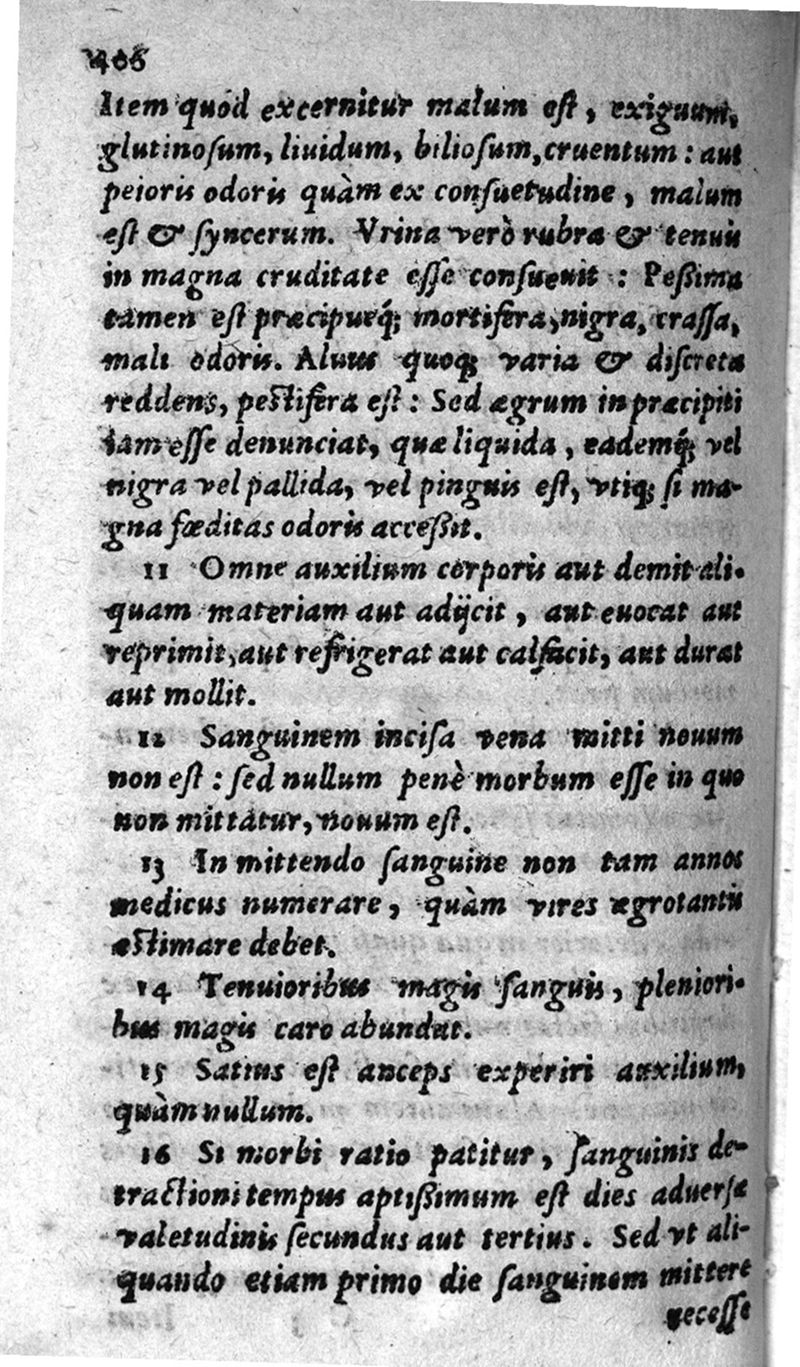 406
Item quod excernitur malum eſt, exiguum,
glutinoſum, liuidum, bilioſum, cruentum: aut
peioris odoris quàm ex conſuetudine, malum
eſt & ſyncerum. Vrina verò rubra & tenuis
in magna cruditate eſſe conſueuit : Peßima
tamen eſt præcipueq́; mortifera, nigra, craſſa,
mali odoris. Aluus quoq; varia & diſcreta
reddens, peſtifera eſt: Sed ægrum in præcipiti
iam eſſe denunciat, quæ liquida, eademq́; vel
nigra vel pallida, vel pinguis eſt, vtiq; ſi ma-
gna fœditas odoris acceßit.
11 Omne auxilium corporis aut demit ali-
quam materiam aut adijcit, aut euocat aut
reprimit, aut refrigerat aut calfacit, aut durat
aut mollit.
12 Sanguinem inciſa vena mitti nouum
non eſt: ſed nullum penè morbum eſſe in quo
non mittatur, nouum eſt.
13 In mittendo ſanguine non tam annos
medicus numerare, quàm vires ægrotantis
æſtimare debet.
14 Tenuioribus magis ſanguis, pleniori-
bus magis caro abundat.
15 Satius eſt anceps experiri auxilium,
quàm nullum.
16 Si morbi ratio patitur, ſanguinis de-
tractioni tempus aptißimum eſt dies aduerſæ
valetudinis ſecundus aut tertius. Sed vt ali-
quando etiam primo die ſanguinem mittere
neceſſe